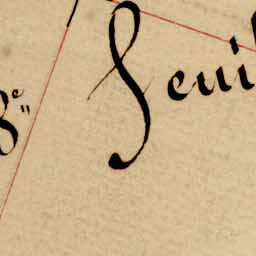 8e
Feuil